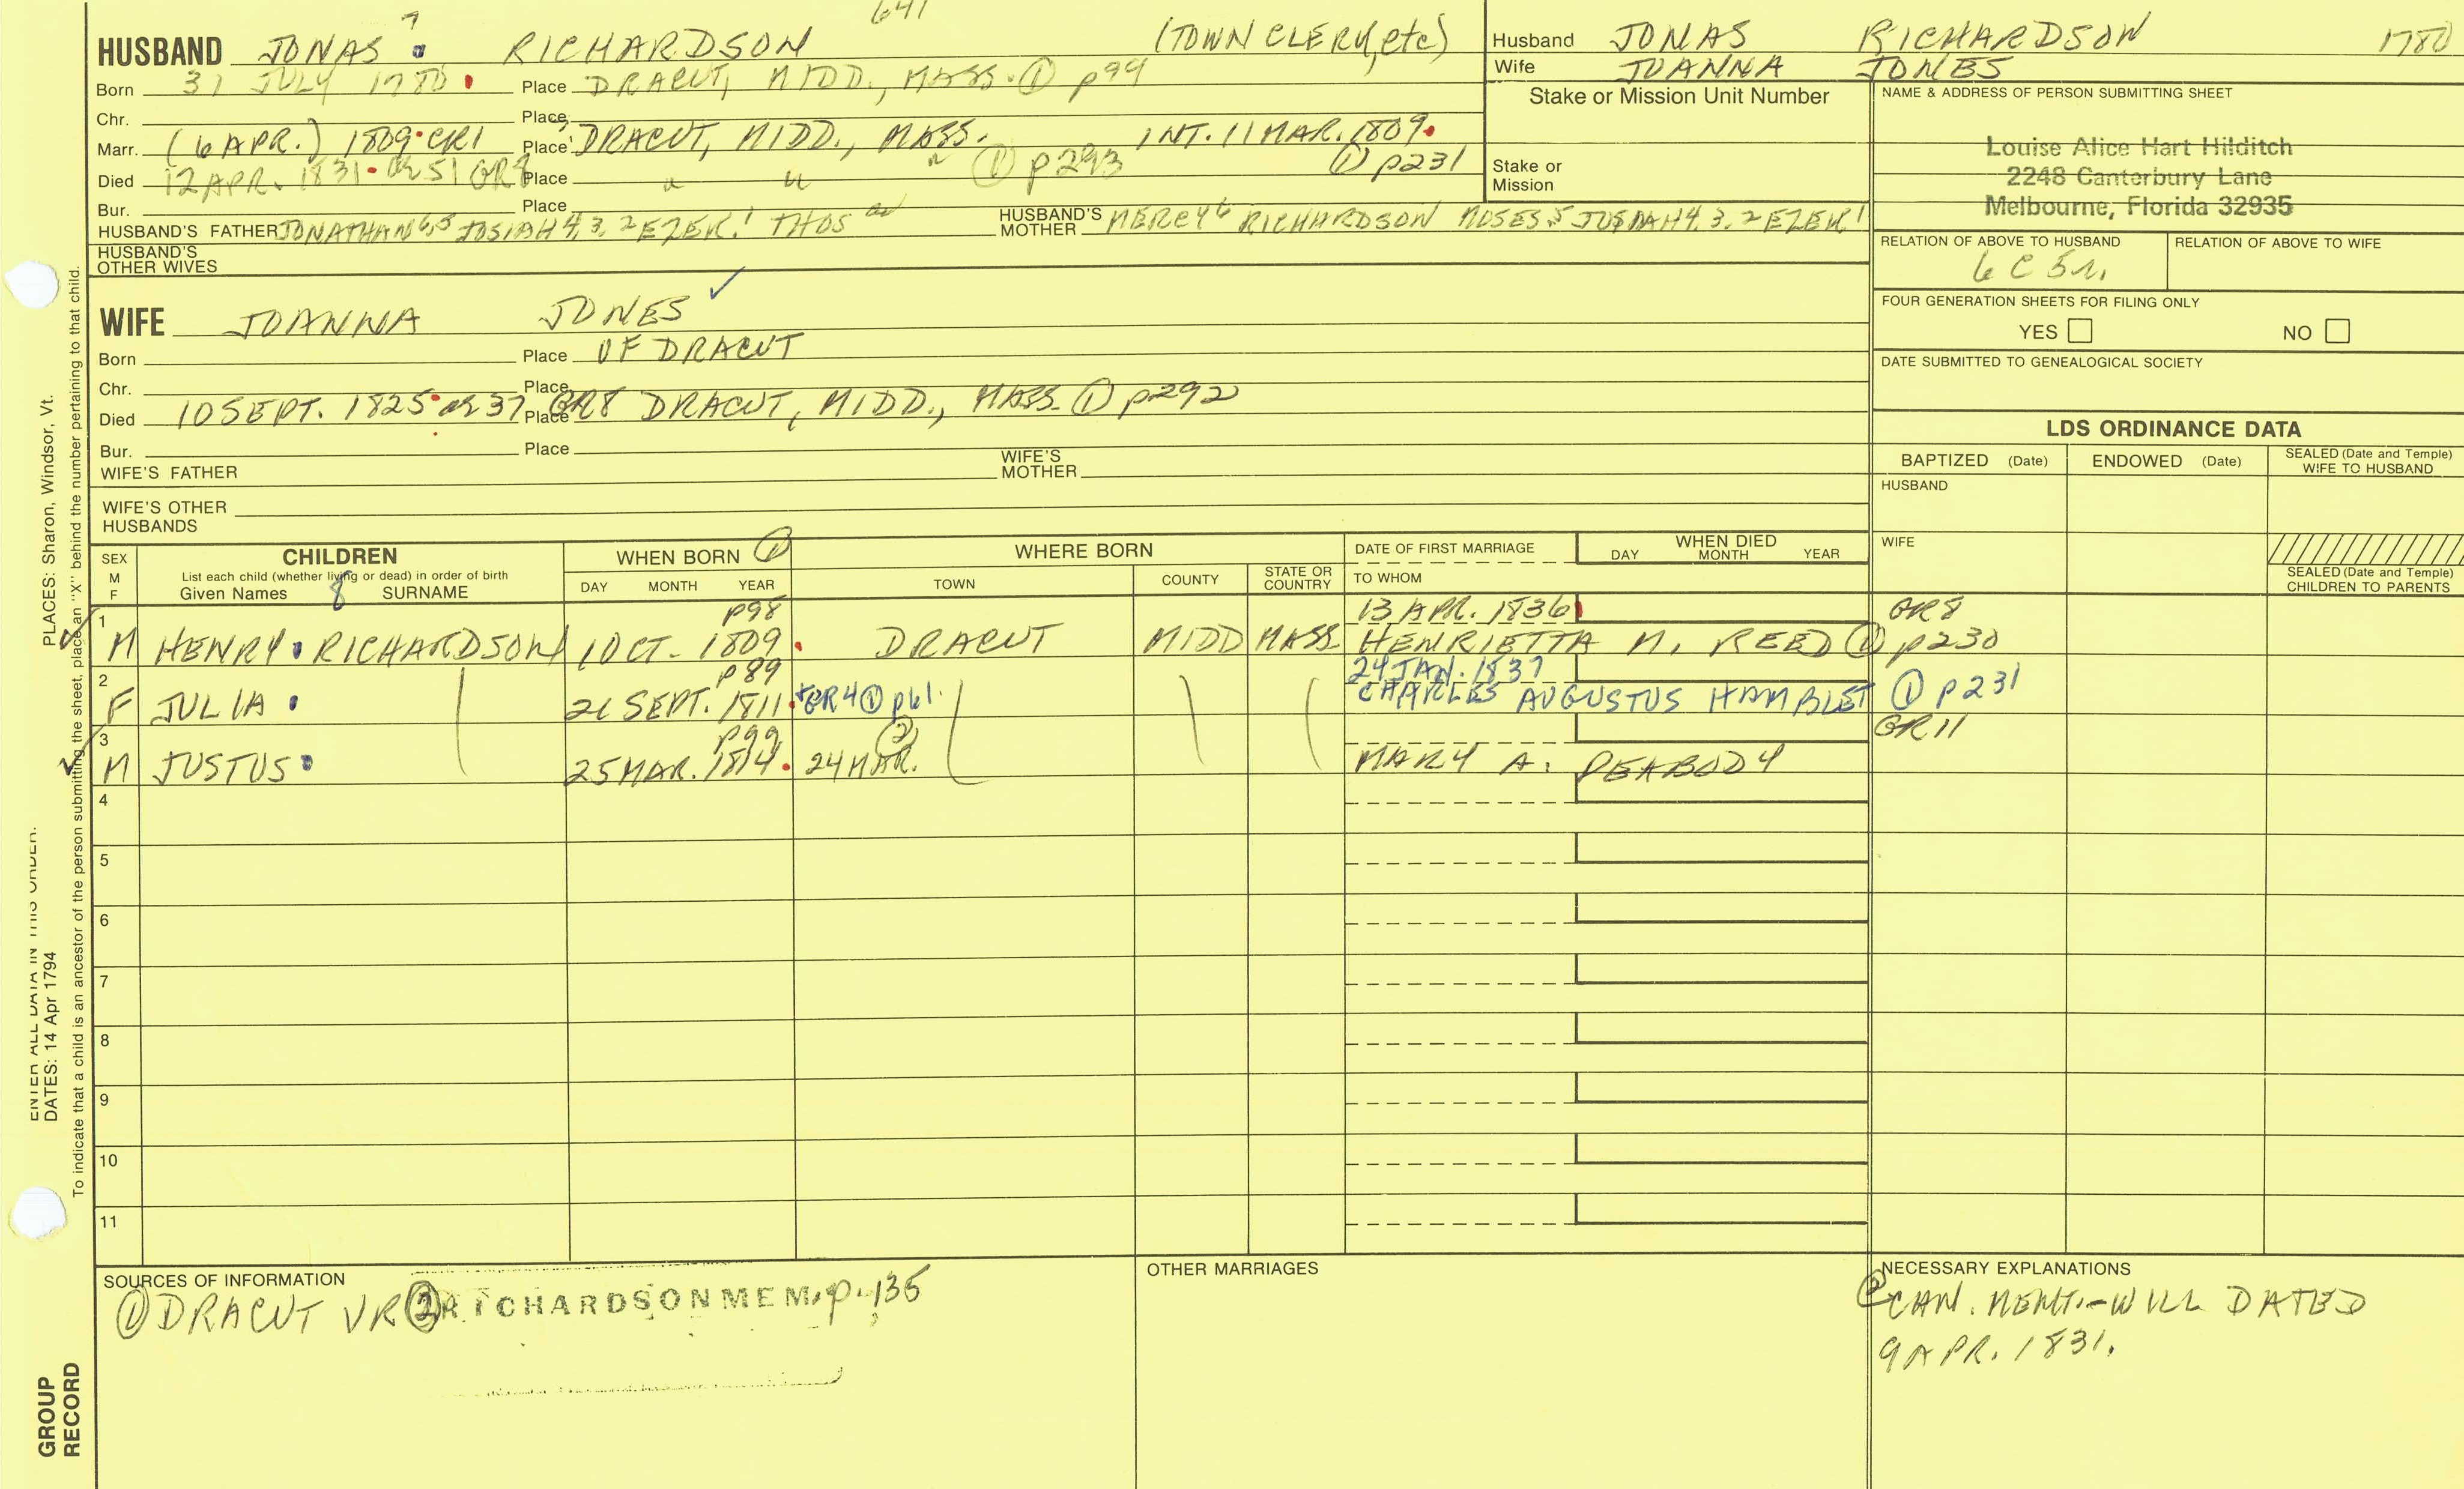 641
HUSBAND JONAS 7 RICHARDSON (TOWN CLERK, etc)
Born 31 JULY 1780 Place DRACUT, MIDD., MASS. ① p99
Chr. Place
Marr. (6 APR.) 1809 CR1 Place DRACUT, MIDD., MASS. INT. 11 MAR. 1809
Died 12 APR. 1831 ae 51 GR8 Place " " " ① p293 ① p231
Bur. Place
HUSBAND'S FATHER JONATHAN 6,5 JOSIAH 4,3,2 EZEK.1 THOS HUSBAND'S MOTHER MERCY 6 RICHARDSON MOSES 5 JOSIAH 4,3,2 EZEK 1
HUSBAND'S OTHER WIVES
WIFE JOANNA JONES ✓
Born Place OF DRACUT
Chr. Place
Died 10 SEPT. 1825 ae 37 GR8 Place DRACUT, MIDD., MASS. ① p292
Bur. Place
WIFE'S FATHER WIFE'S MOTHER
WIFE'S OTHER HUSBANDS
Husband JONAS RICHARDSON 1780
Wife JOANNA JONES
Stake or Mission Unit Number
Stake or Mission
NAME & ADDRESS OF PERSON SUBMITTING SHEET
Louise Alice Hart Hilditch
2248 Canterbury Lane
Melbourne, Florida 32935
RELATION OF ABOVE TO HUSBAND RELATION OF ABOVE TO WIFE
6 C 5 r.
FOUR GENERATION SHEETS FOR FILING ONLY
YES NO
DATE SUBMITTED TO GENEALOGICAL SOCIETY
LDS ORDINANCE DATA
BAPTIZED (Date) ENDOWED (Date) SEALED (Date and Temple) WIFE TO HUSBAND
HUSBAND
WIFE
SEALED (Date and Temple) CHILDREN TO PARENTS
SEX M F
CHILDREN
List each child (whether living or dead) in order of birth
Given Names 8 SURNAME
WHEN BORN ①
DAY MONTH YEAR
WHERE BORN
TOWN COUNTY STATE OR COUNTRY
DATE OF FIRST MARRIAGE
TO WHOM
WHEN DIED
DAY MONTH YEAR
1 p98 13 APR. 1836 GR8
M HENRY RICHARDSON 1 OCT. 1809 DRACUT MIDD MASS. HENRIETTA M. REED ① p230
2 p89 24 JAN. 1837
F JULIA 21 SEPT. 1811 *GR4 ① p61. CHARLES AUGUSTUS HAMBLET ① p231
3 p99 ② GR11
M JUSTUS 25 MAR. 1814 24 MAR. MARY A. PEABODY
4
5
6
7
8
9
10
11
SOURCES OF INFORMATION
① DRACUT VR ② RICHARDSON MEM. p. 135
OTHER MARRIAGES
NECESSARY EXPLANATIONS
② CAN. MENT. - WILL DATED
9 APR. 1831.
ENTER ALL DATA IN THIS ORDER:
PLACES: Sharon, Windsor, Vt.
DATES: 14 Apr 1794
To indicate that a child is an ancestor of the person submitting the sheet, place an "X" behind the number pertaining to that child.
GROUP
RECORD